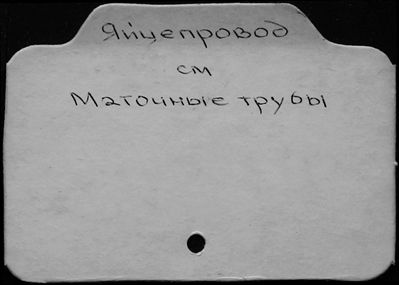 Яйцепровод
см
Маточные трубы